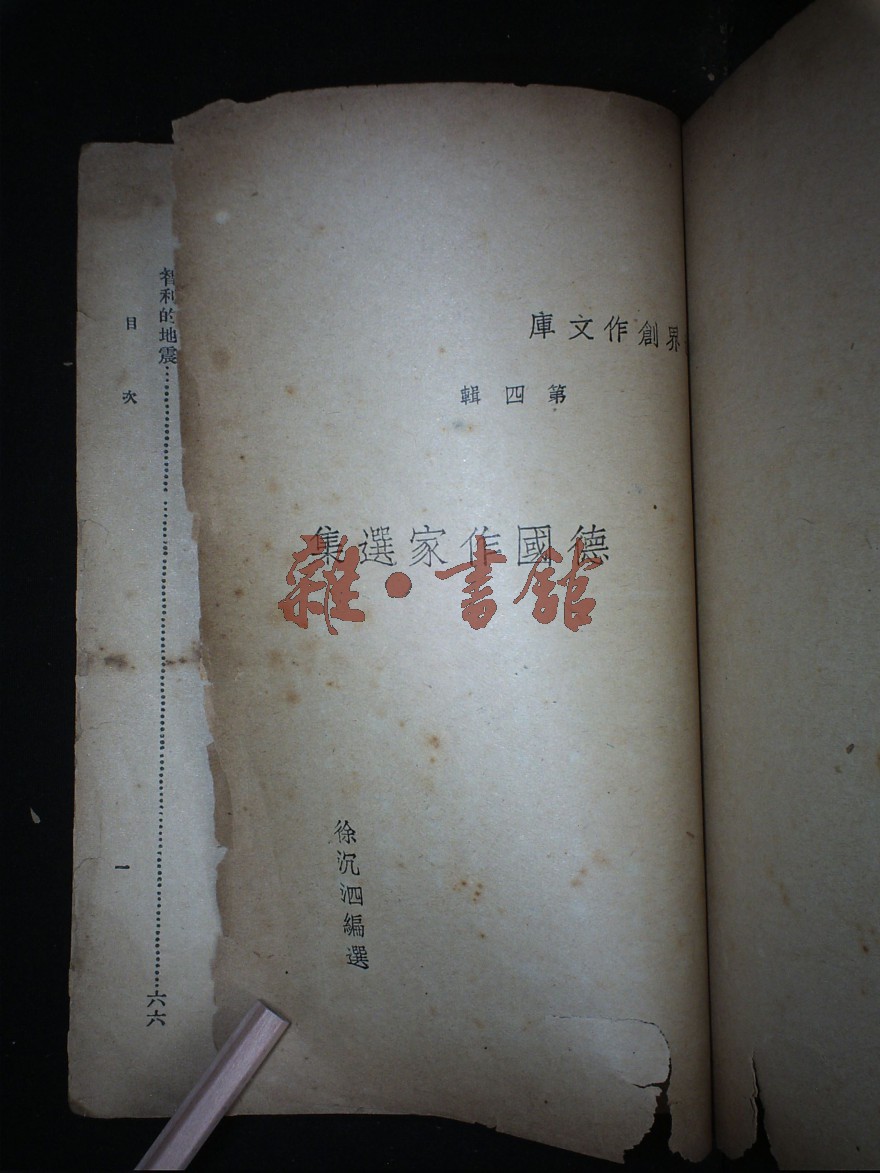 界創作文庫
第四輯
德國作家選集
雜·書館
徐沉泗編選
智利的地震……六六
目次
一